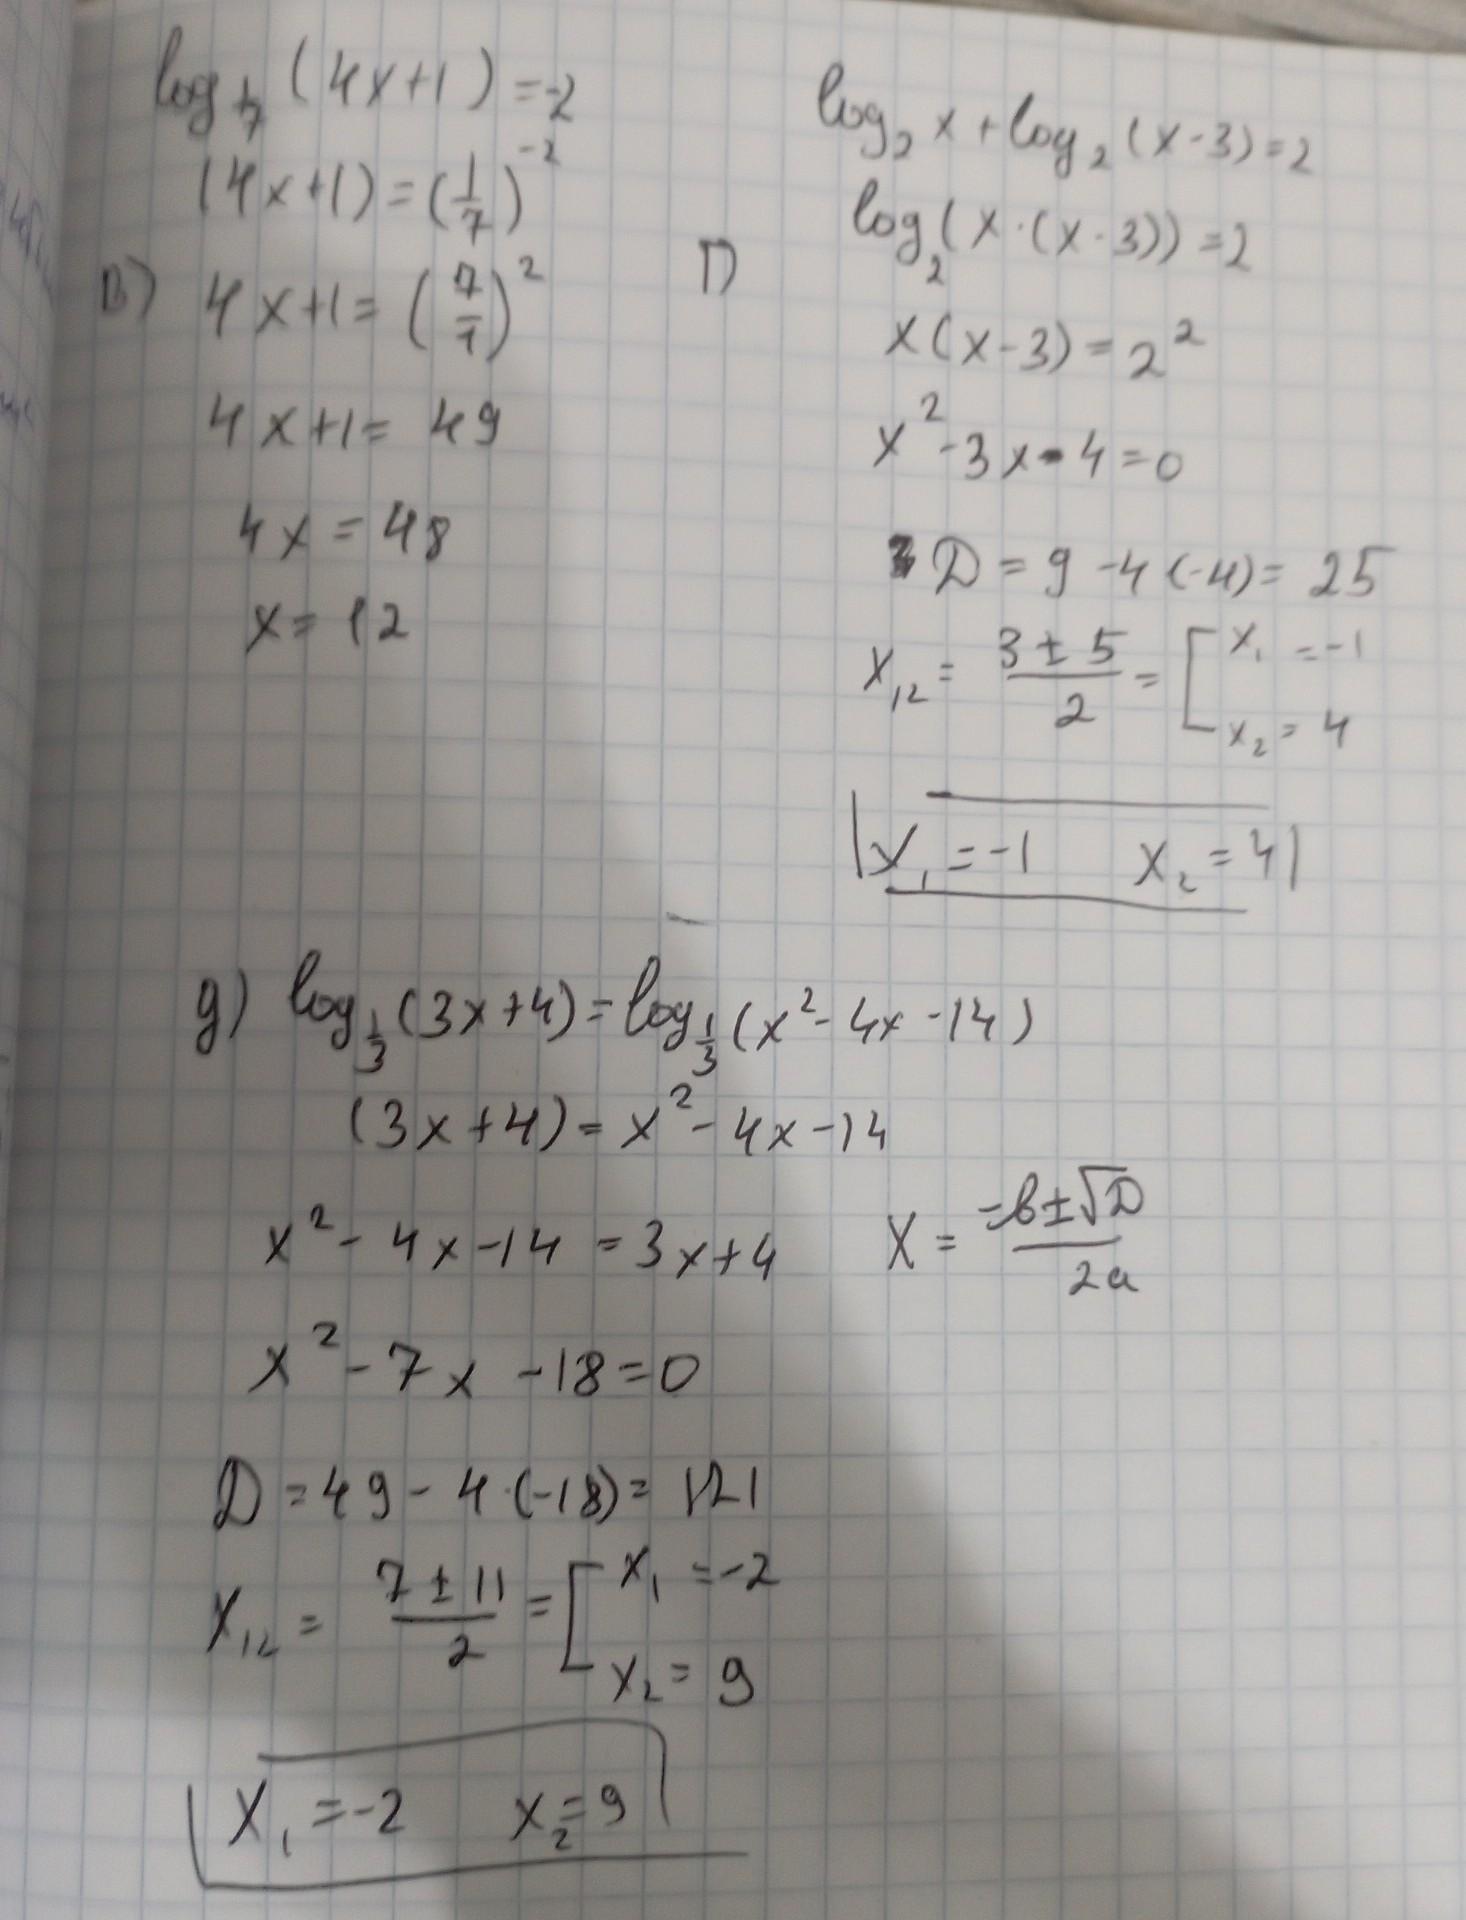 log_{1/7} (4x+1) = -2
(4x+1) = (1/7)^{-2}
В) 4x+1 = (7/1)^2
4x+1 = 49
4x = 48
x = 12
log_2 x + log_2 (x-3) = 2
Г) log_2 (x·(x-3)) = 2
x(x-3) = 2^2
x^2 - 3x - 4 = 0
D = 9 - 4(-4) = 25
x_{12} = (3 ± 5)/2 = [ x_1 = -1
x_2 = 4
x_1 = -1 x_2 = 4
g) log_{1/3} (3x+4) = log_{1/3} (x^2 - 4x - 14)
(3x+4) = x^2 - 4x - 14
x^2 - 4x - 14 = 3x+4
x = (-b ± √D)/2a
x^2 - 7x - 18 = 0
D = 49 - 4·(-18) = 121
x_{12} = (7 ± 11)/2 = [ x_1 = -2
x_2 = 9
x_1 = -2 x_2 = 9